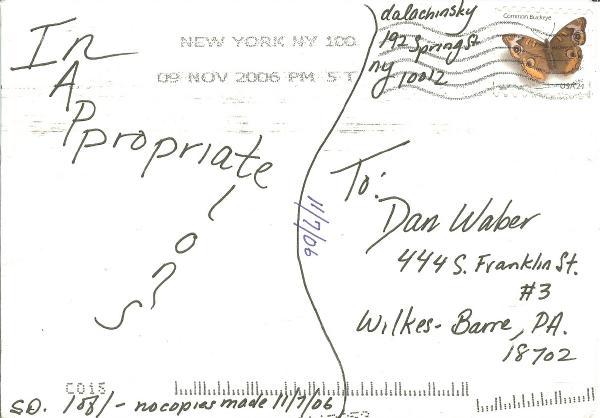 In
A
Ppropriate
i
o
n
s
NEW YORK NY 100
09 NOV 2006 PM 5 T
dalachinsky
Spring St
ny 10012
Common Buckeye
USA 24
To:
Dan Waber
444 S. Franklin St.
#3
Wilkes-Barre, PA.
18702
11/7/06
C015
SD. - no copies made 11/7/06